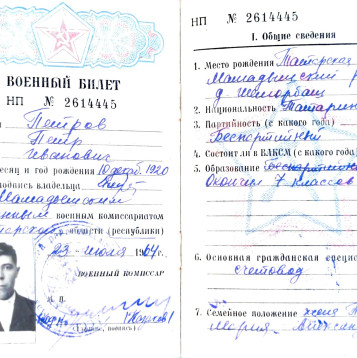 ВОЕННЫЙ БИЛЕТ
НП № 2614445
Петров
Петр
Иванович
месяц и год рождения 10 декаб. 1920
подпись владельца
Мамадышский
енным военным комиссариатом
области (республики)
23 июля 1964
ВОЕННЫЙ КОМИССАР
М. П.
НП № 2614445
I. Общие сведения
1. Место рождения Татарская
Мамадышский р
д.
2. Национальность Татарин
3. Партийность (с какого года)
Беспартийный
4. Состоит ли в ВЛКСМ (с какого года)
5. образование Беспартийный
Окончил 7 классов
6. Основная гражданская специа
счетовод
7. Семейное положение жена
Мария